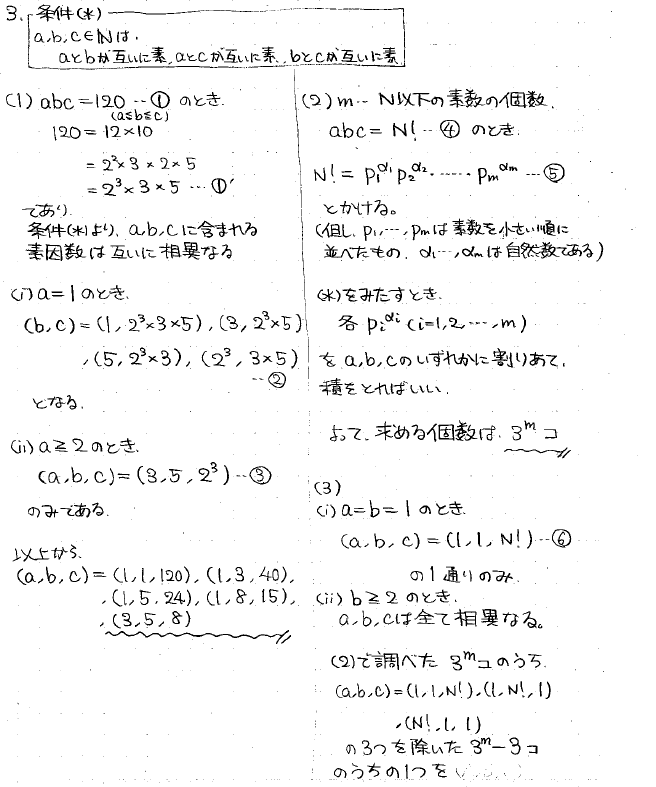 3. 条件(*)
a,b,c∈Nは、
aとbが互いに素、aとcが互いに素、bとcが互いに素
(1) abc=120…① のとき、
(a≦b≦c)
120=12×10
=2³×3×2×5
=2³×3×5…①'
であり、
条件(*)より、a,b,cに含まれる
素因数は互いに相異なる
(i) a=1のとき、
(b,c)=(1,2³×3×5),(3,2³×5)
,(5,2³×3),(2³,3×5)
…②
となる。
(ii) a≧2のとき、
(a,b,c)=(3,5,2³)…③
のみである。
以上から、
(a,b,c)=(1,1,120),(1,3,40),
,(1,5,24),(1,8,15),
,(3,5,8)
(2) m… N以下の素数の個数、
abc=N!…④ のとき、
N!=p₁^α₁ p₂^α₂ …… pₘ^αₘ …⑤
とかける。
(但し、p₁,…,pₘは素数を小さい順に
並べたもの、α₁…,αₘは自然数である)
(*)をみたすとき、
各 pᵢ^αᵢ (i=1,2…,m)
を a,b,cのいずれかに割りあて、
積をとればいい、
よって、求める個数は、3^m コ
(3)
(i) a=b=1のとき、
(a,b,c)=(1,1,N!)…⑥
の1通りのみ、
(ii) b≧2のとき、
a,b,cは全て相異なる。
(2)で調べた 3^mコのうち、
(a,b,c)=(1,1,N!),(1,N!,1)
,(N!,1,1)
の3つを除いた 3^m-3コ
のうちの1つを